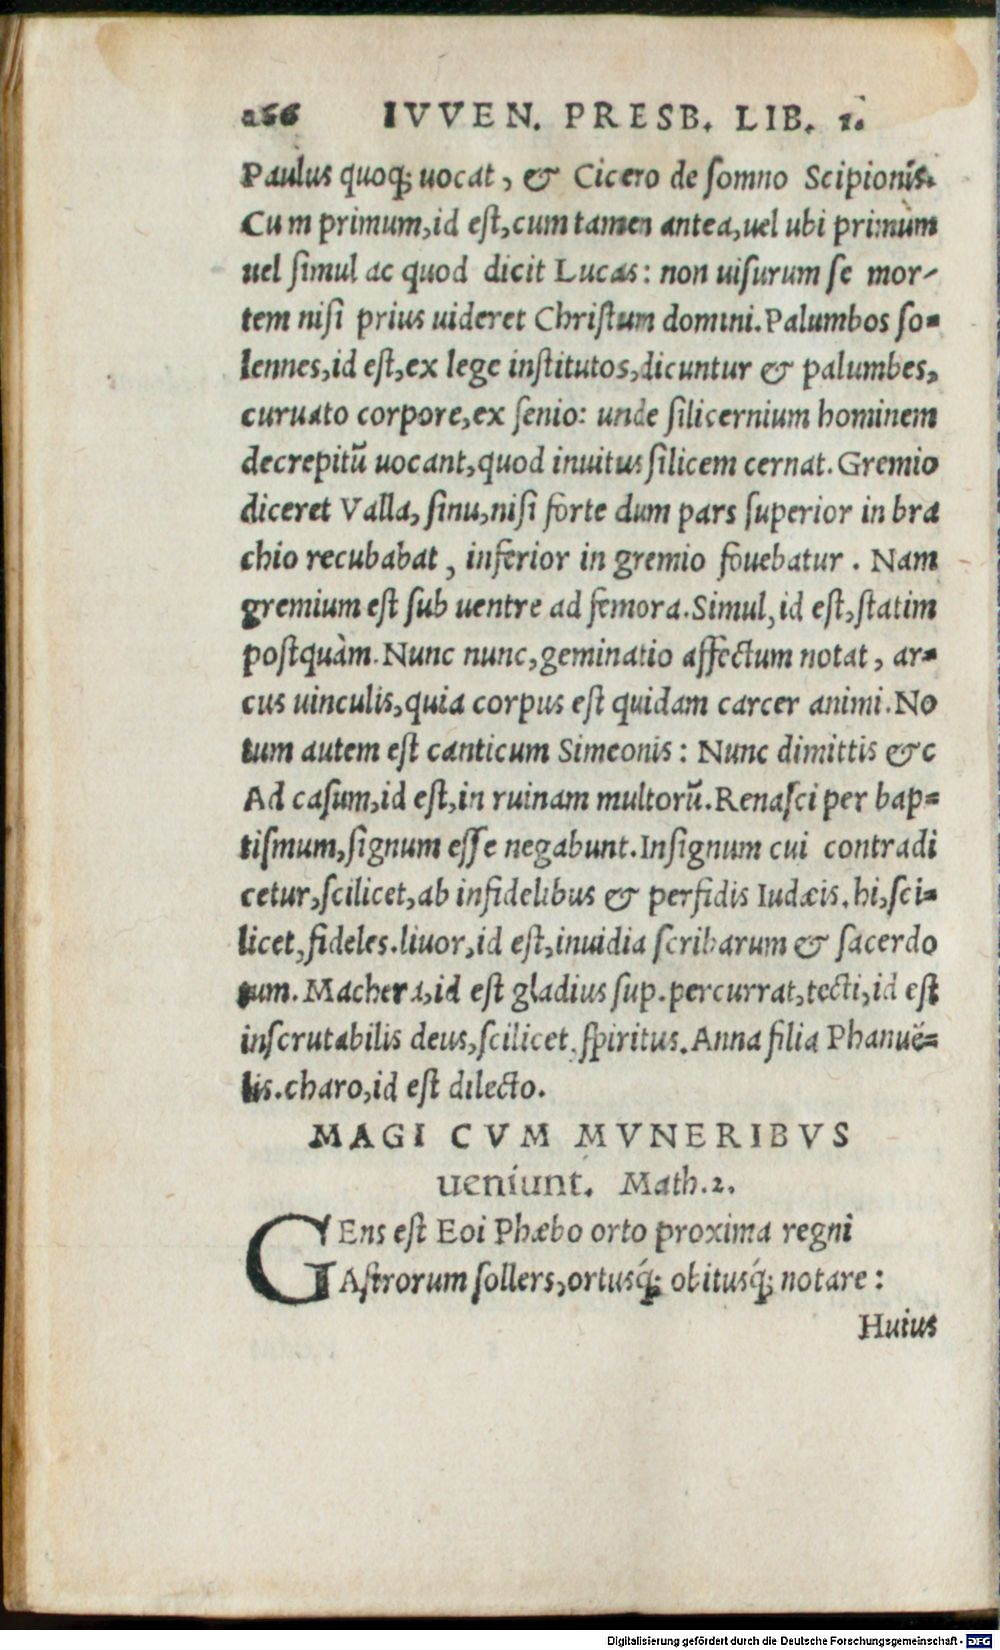 266 IVVEN. PRESB. LIB. 1.
Paulus quoq; uocat, & Cicero de ſomno Scipionis.
Cum primum, id eſt, cum tamen antea, uel ubi primum
uel ſimul ac quod dicit Lucas: non uiſurum ſe mor-
tem niſi prius uideret Chriſtum domini. Palumbos ſo-
lennes, id eſt, ex lege inſtitutos, dicuntur & palumbes,
curuato corpore, ex ſenio: unde ſilicernium hominem
decrepitũ uocant, quod inuitus ſilicem cernat. Gremio
diceret Valla, ſinu, niſi forte dum pars ſuperior in bra
chio recubabat, inferior in gremio fouebatur. Nam
gremium eſt ſub uentre ad femora. Simul, id eſt, ſtatim
poſtquàm. Nunc nunc, geminatio affectum notat, ar-
cus uinculis, quia corpus eſt quidam carcer animi. No
tum autem eſt canticum Simeonis: Nunc dimittis &c
Ad caſum, id eſt, in ruinam multorũ. Renaſci per bap-
tiſmum, ſignum eſſe negabunt. Inſignum cui contradi
cetur, ſcilicet, ab infidelibus & perfidis Iudæis. hi, ſci-
licet, fideles. liuor, id eſt, inuidia ſcribarum & ſacerdo
tum. Machera, id eſt gladius ſup. percurrat, tecti, id eſt
inſcrutabilis deus, ſcilicet, ſpiritus. Anna filia Phanuë-
lis. charo, id eſt dilecto.
MAGI CVM MVNERIBVS
ueniunt. Math. 2.
GEns eſt Eoi Phæbo orto proxima regni
Aſtrorum ſollers, ortusq́; obitusq́; notare:
Huius
Digitalisierung gefördert durch die Deutsche Forschungsgemeinschaft - DFG